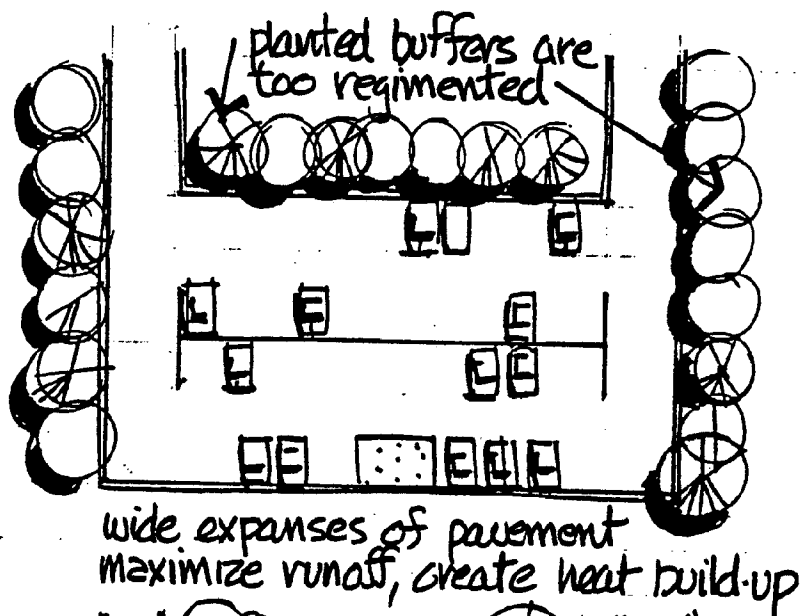 planted buffers are
too regimented
wide expanses of pavement
maximize runoff, create heat build-up